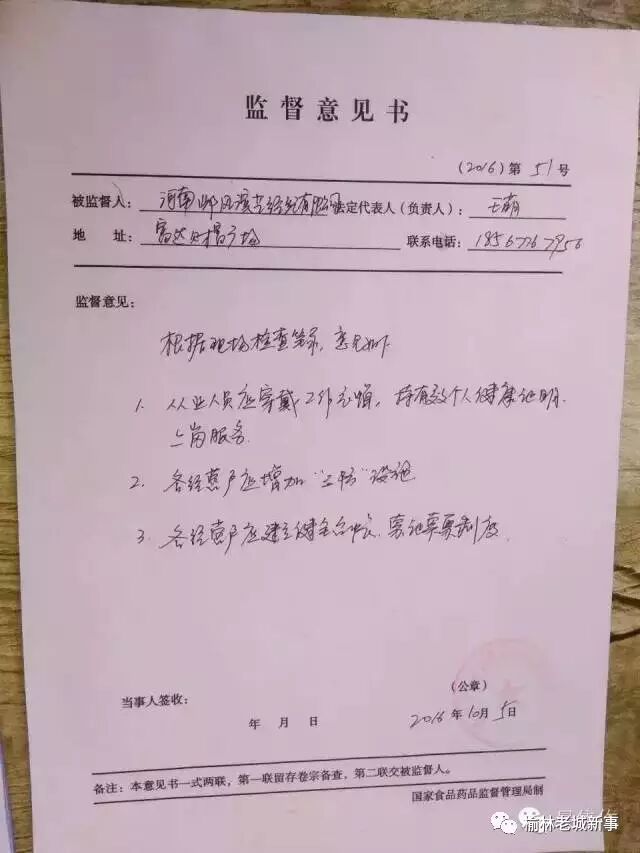 监督意见书
(2016)第 51 号
被监督人: 河南 有限公司 法定代表人(负责人): 王萌
地 址: 富达 广场 联系电话: 18567267956
监督意见:
根据现场检查笔录,意见如下
1. 从业人员应穿戴工作衣帽,持有效个人健康证明
上岗服务.
2. 各经营户应增加“三防”设施
3. 各经营户应建立健全台帐、索证索票制度.
当事人签收:
(公章)
年 月 日
2016 年 10 月 5 日
备注:本意见书一式两联,第一联留存卷宗备查,第二联交被监督人。
国家食品药品监督管理局制
榆林老城新事